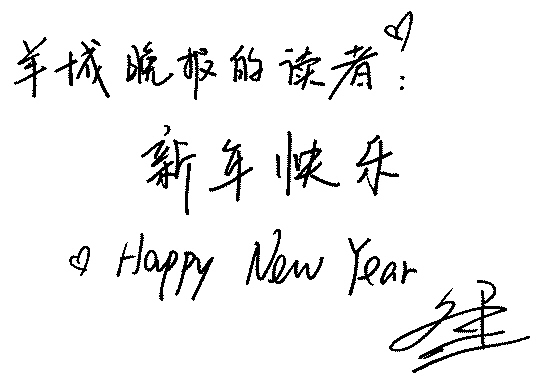 羊城晚报的读者:
新年快乐
Happy New Year